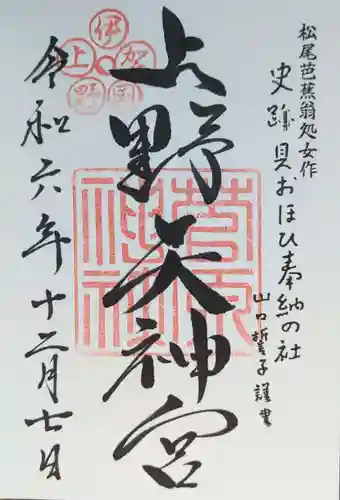 松尾芭蕉翁処女作
史蹟貝おほひ奉納の社
山口哲子謹書
上野天神宮
伊賀国上野
菅原神社
令和六年十二月七日